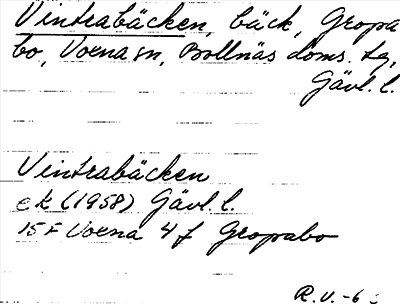 Vintrabäcken, bäck, Gropa
bo, Voxna sn, Bollnäs doms. tg,
Gävl. l.
Vintrabäcken
ek (1958) Gävl. l.
15F Voxna 4f Gropabo
R.V. -6